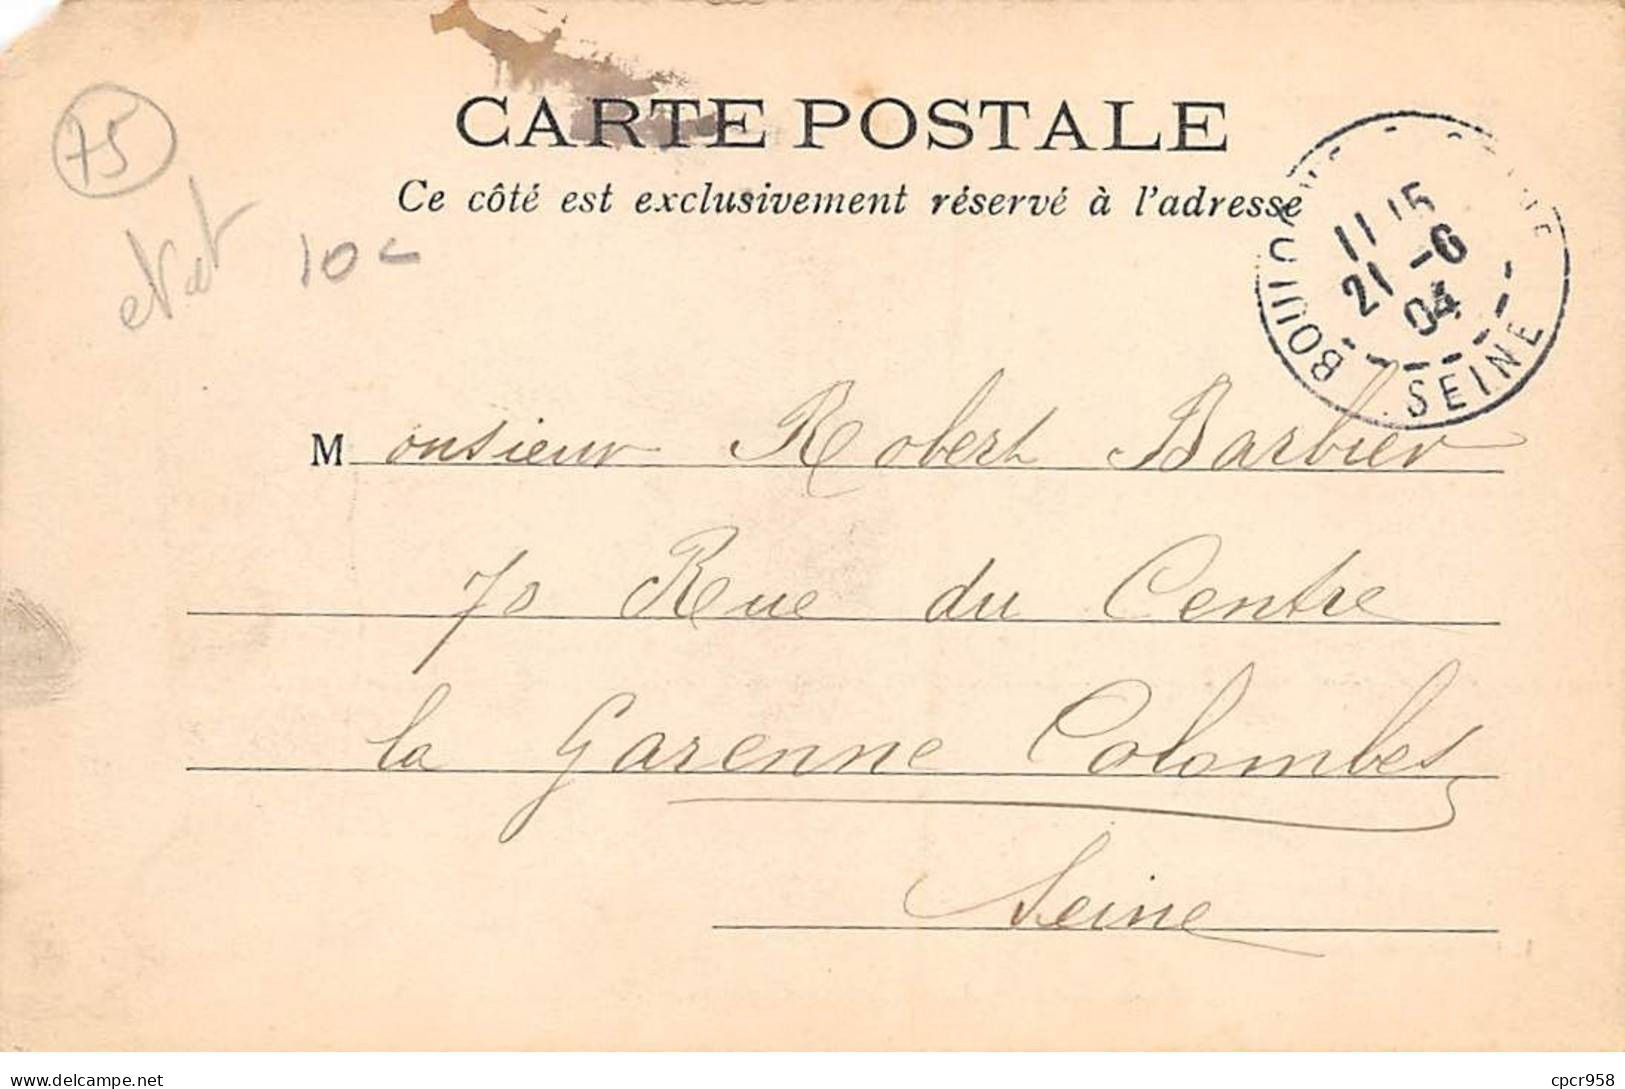 75
CARTE POSTALE
Ce côté est exclusivement réservé à l'adresse
état
10 c
11 15
21 -6
04
SEINE
Monsieur Robert Barbier
70 Rue du Centre
la Garenne Colombes
Seine
delcampe.net
cpcr958